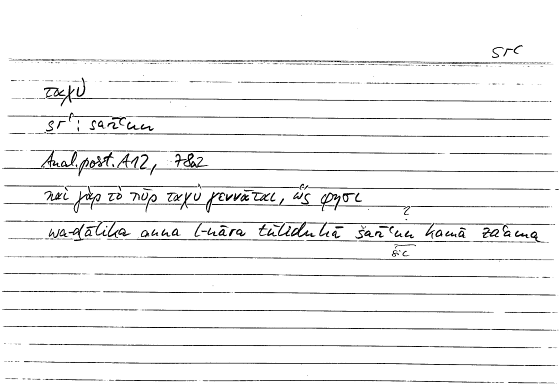 srʿ
ταχύ
srʿ: sarīʿun
Anal.post. A12, 78a2
καὶ γὰρ τὸ πῦρ ταχὺ γεννᾶται, ὥς φησι
?
wa-ḏālika anna l-nāra tūliduhā šarīʿun kamā zaʿama
sic